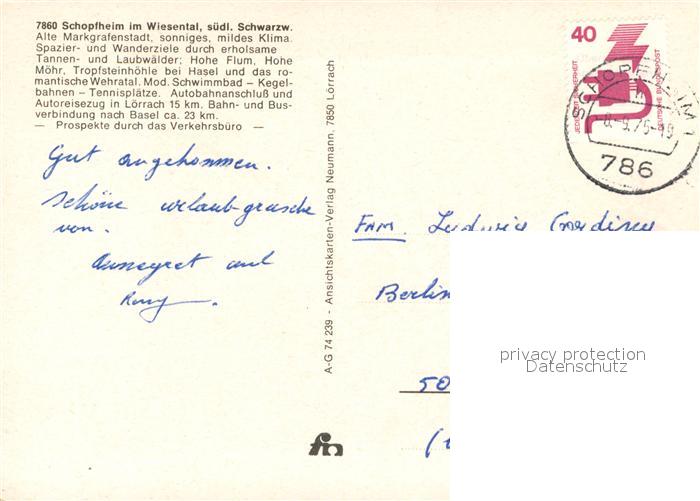 7860 Schopfheim im Wiesental, südl. Schwarzw.
Alte Markgrafenstadt, sonniges, mildes Klima.
Spazier- und Wanderziele durch erholsame
Tannen- und Laubwälder; Hohe Flum, Hohe
Möhr, Tropfsteinhöhle bei Hasel und das ro-
mantische Wehratal. Mod. Schwimmbad – Kegel-
bahnen – Tennisplätze. Autobahnanschluß und
Autoreisezug in Lörrach 15 km. Bahn- und Bus-
verbindung nach Basel ca. 23 km.
— Prospekte durch das Verkehrsbüro —
Gut angekommen.
Schöne urlaub-grüsche
von.
Annegret und
A-G 74 239 - Ansichtskarten-Verlag Neumann, 7850 Lörrach
40
JEDERZEIT SICHERHEIT
DEUTSCHE BUNDESPOST
SCHOPFHEIM 1
-8.-9.75-19
786
FAM. Ludwig
Berlin
50
privacy protection
Datenschutz